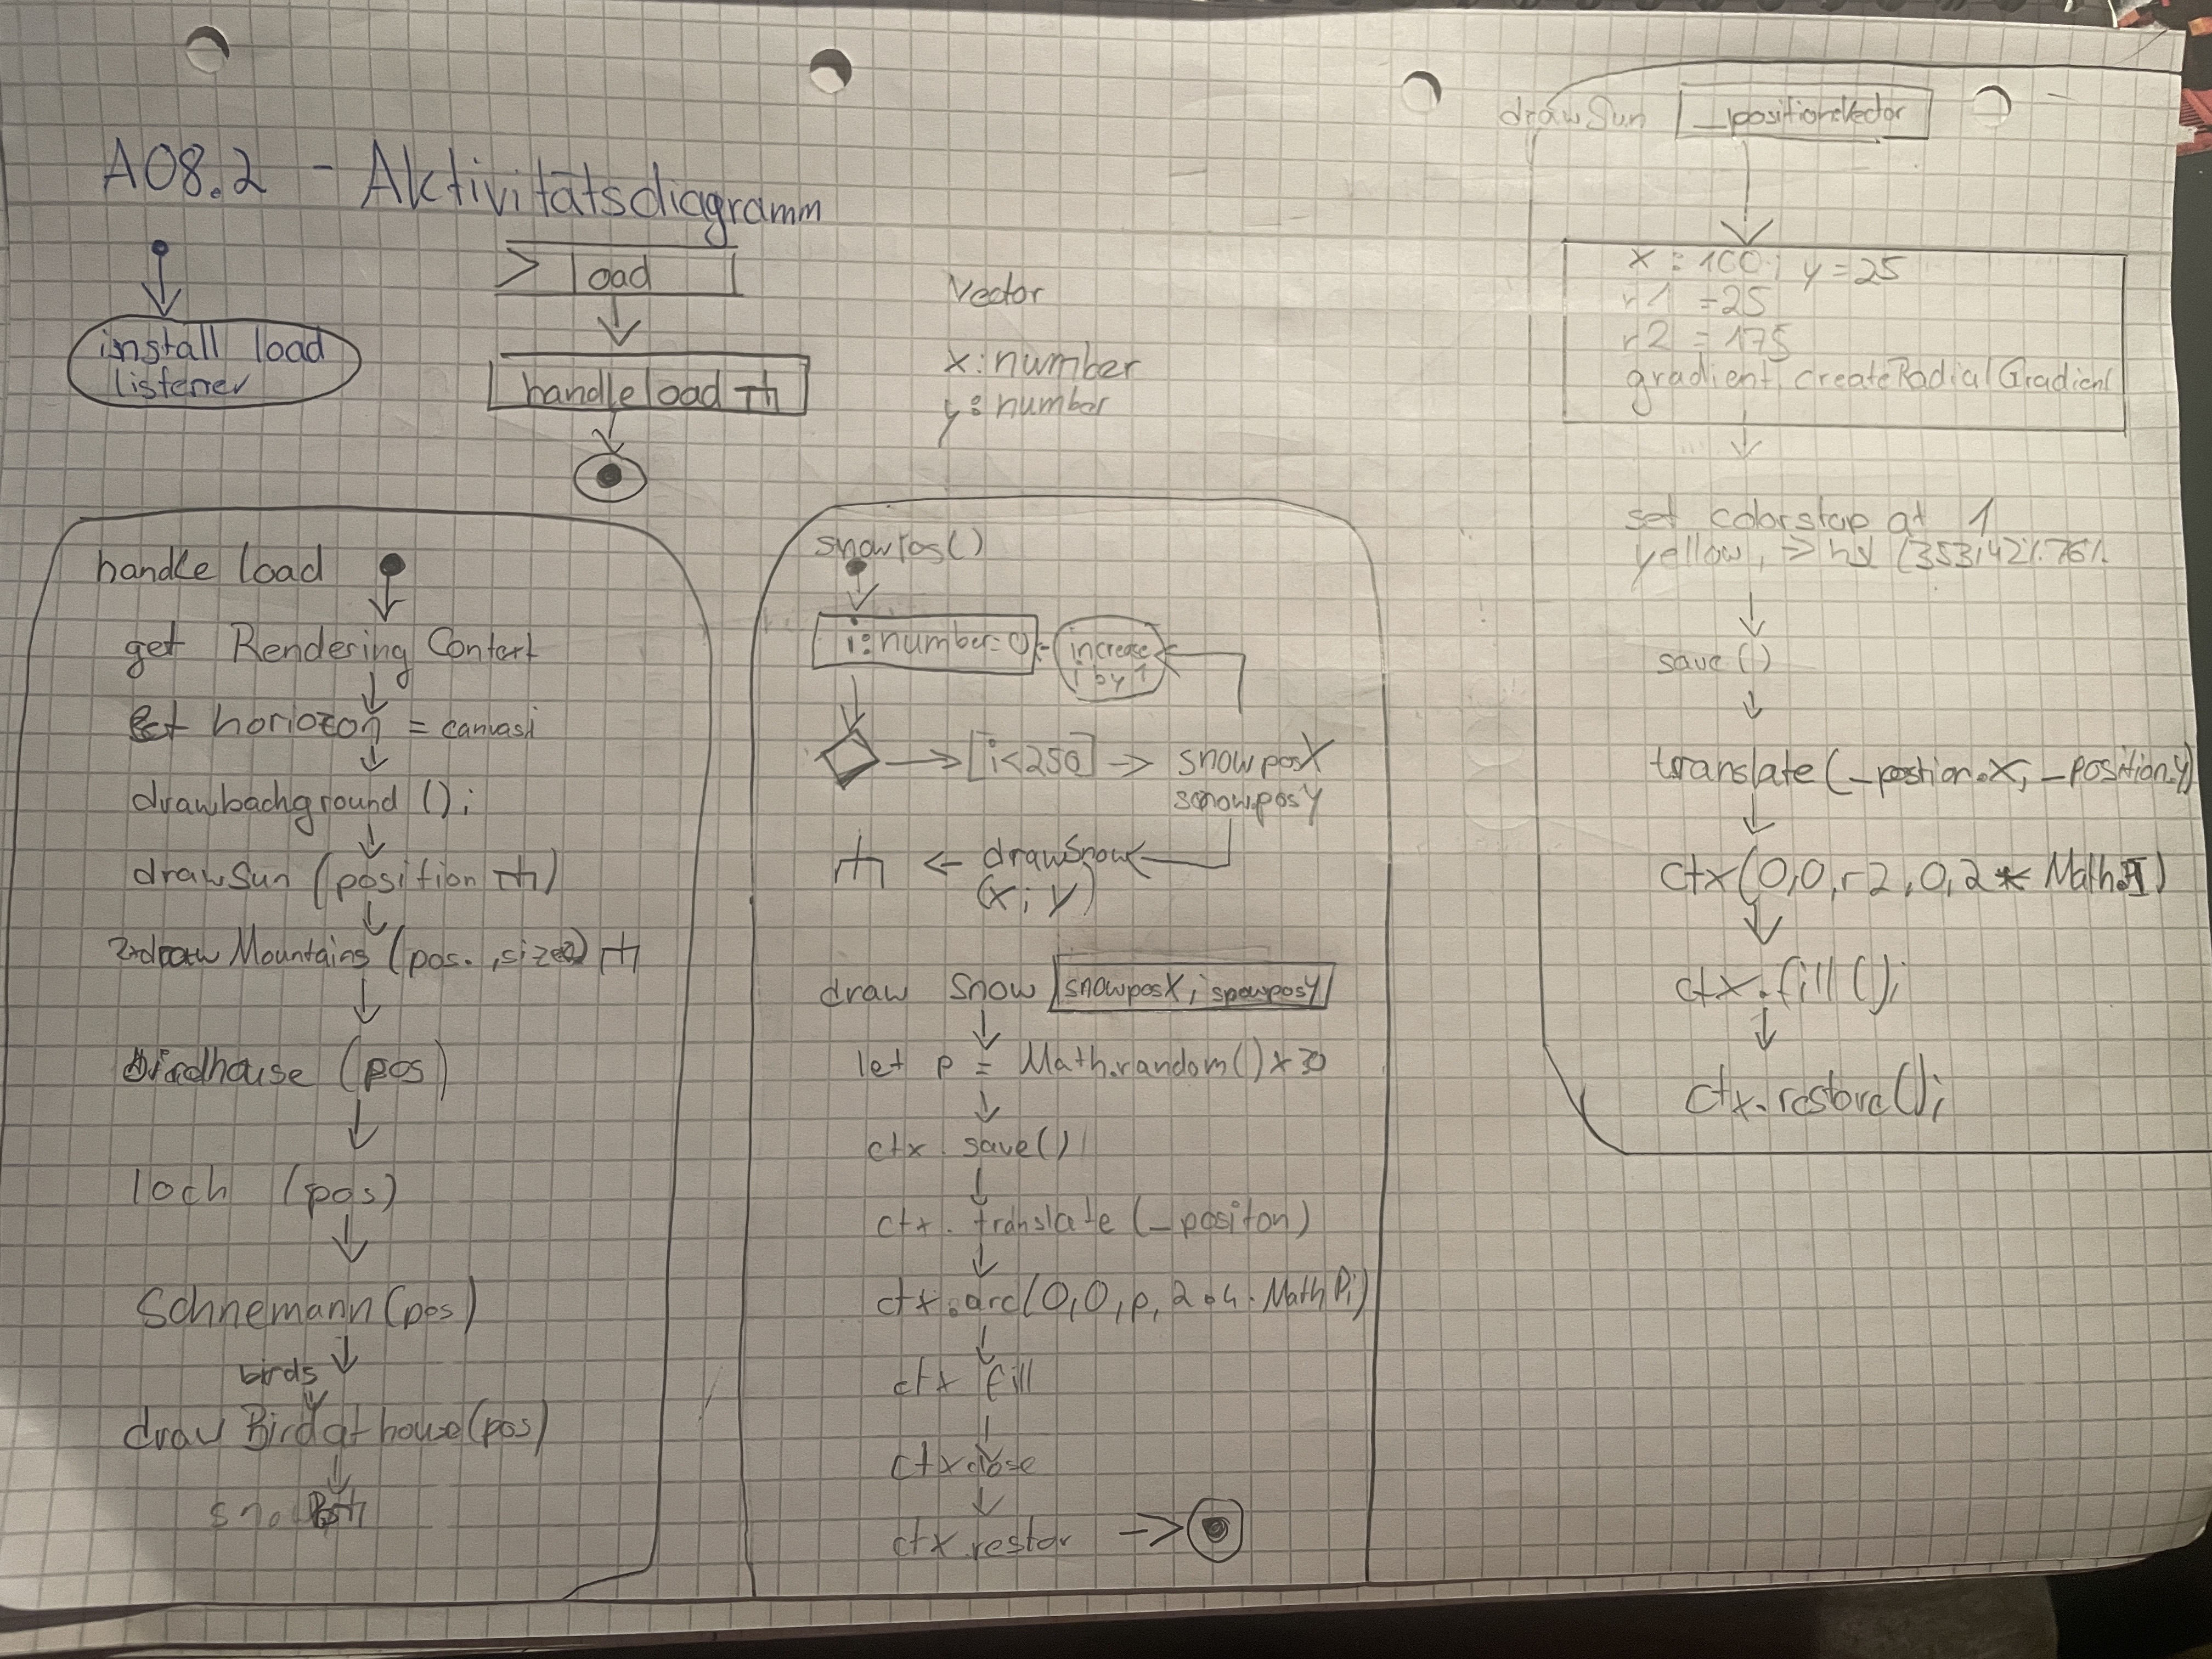 A08.2 - Aktivitätsdiagramm
install load
listener
load
handle load
Vector
x: number
y: number
handle load
get Rendering Contert
let horiozon = canvas
drawbachground ();
drawSun (position)
draw Mountains (pos., size)
birdhouse (pos)
loch (pos)
Schnemann (pos)
birds
draw Bird at house (pos)
snowPos()
i: number = 0
increase
i by 1
[i<250]
snowposX
snowposY
drawSnow
(x; y)
draw Snow
snowposX; snowposY
let p = Math.random() * 30
ctx. save()
ctx. translate (_positon)
ctx.arc(0,0,p, 2.4. Math Pi)
ctx fill
ctx close
ctx restor
drawSun
_position:Vector
x = 100; y = 25
r1 = 25
r2 = 175
gradient, createRadialGradient
set colorstop at 1
yellow, -> hsl (353,42%.76%
save ()
translate (_postion.X, _position.y)
ctx(0,0,r2,0,2 * Math.PI)
ctx.fill();
ctx.restore();